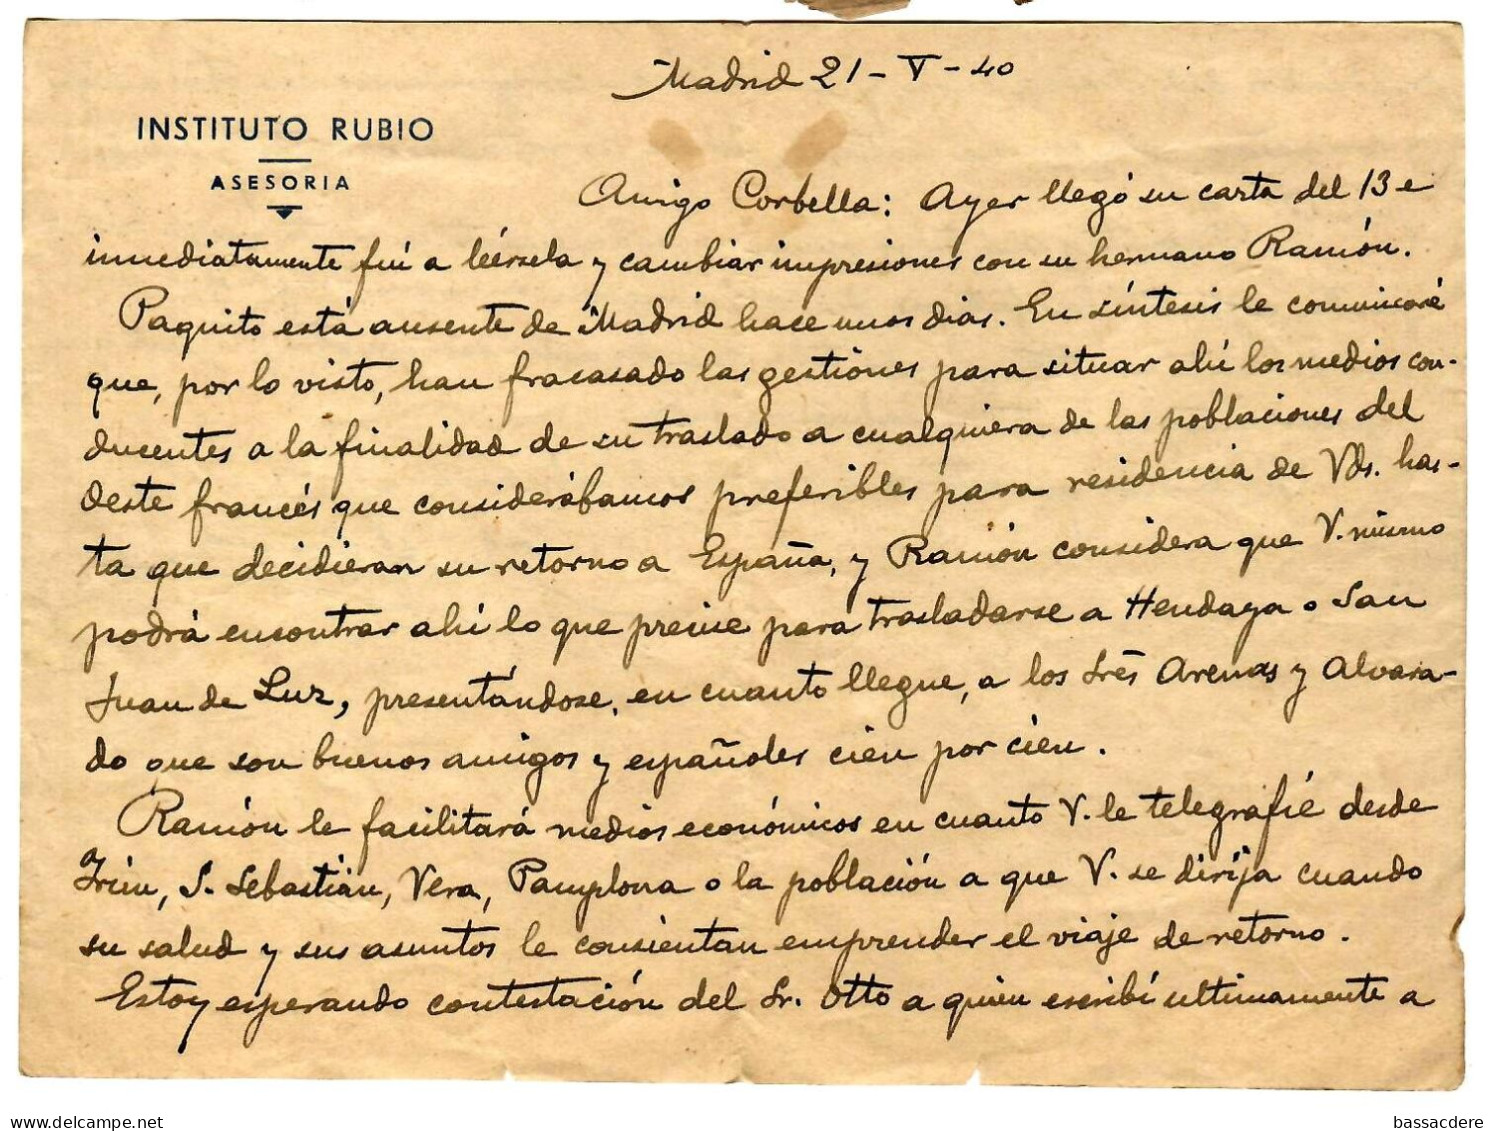 Madrid 21-V-40
INSTITUTO RUBIO
ASESORIA
Amigo Corbella: Ayer llegó su carta del 13 e
inmediatamente fuí a leérsela y cambiar impresiones con su hermano Ramón.
Paquito está ausente de Madrid hace unos dias. En síntesis le comunicaré
que, por lo visto, han fracasado las gestiónes para situar ahí los medios con-
ducentes a la finalidad de su traslado a cualquiera de las poblaciones del
Oeste francés que considerábamos preferibles para residencia de Vds. has-
ta que decidieran su retorno a España, y Ramón considera que V. mismo
podrá encontrar ahí lo que precise para trasladarse a Hendaya o San
Juan de Luz, presentándose, en cuanto llegue, a los Sres Arenas y Alvara-
do que son buenos amigos y españoles cien por cien.
Ramón le facilitará medios económicos en cuanto V. le telegrafíe desde
Irún, S. Sebastián, Vera, Pamplona o la población a que V. se dirija cuando
su salud y sus asuntos le consientan emprender el viaje de retorno.
Estoy esperando contestación del Sr. Otto a quien escribí ultimamente a
delcampe.net
bassacdere